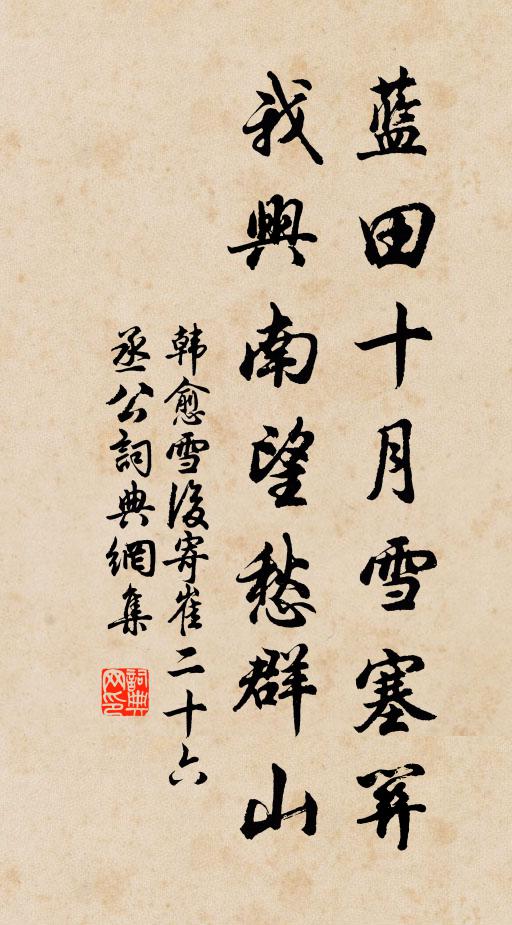 藍田十月雪塞關
我興南望愁群山
韩愈雪後寄崔二十六
丞公詞典網集
詞典网印